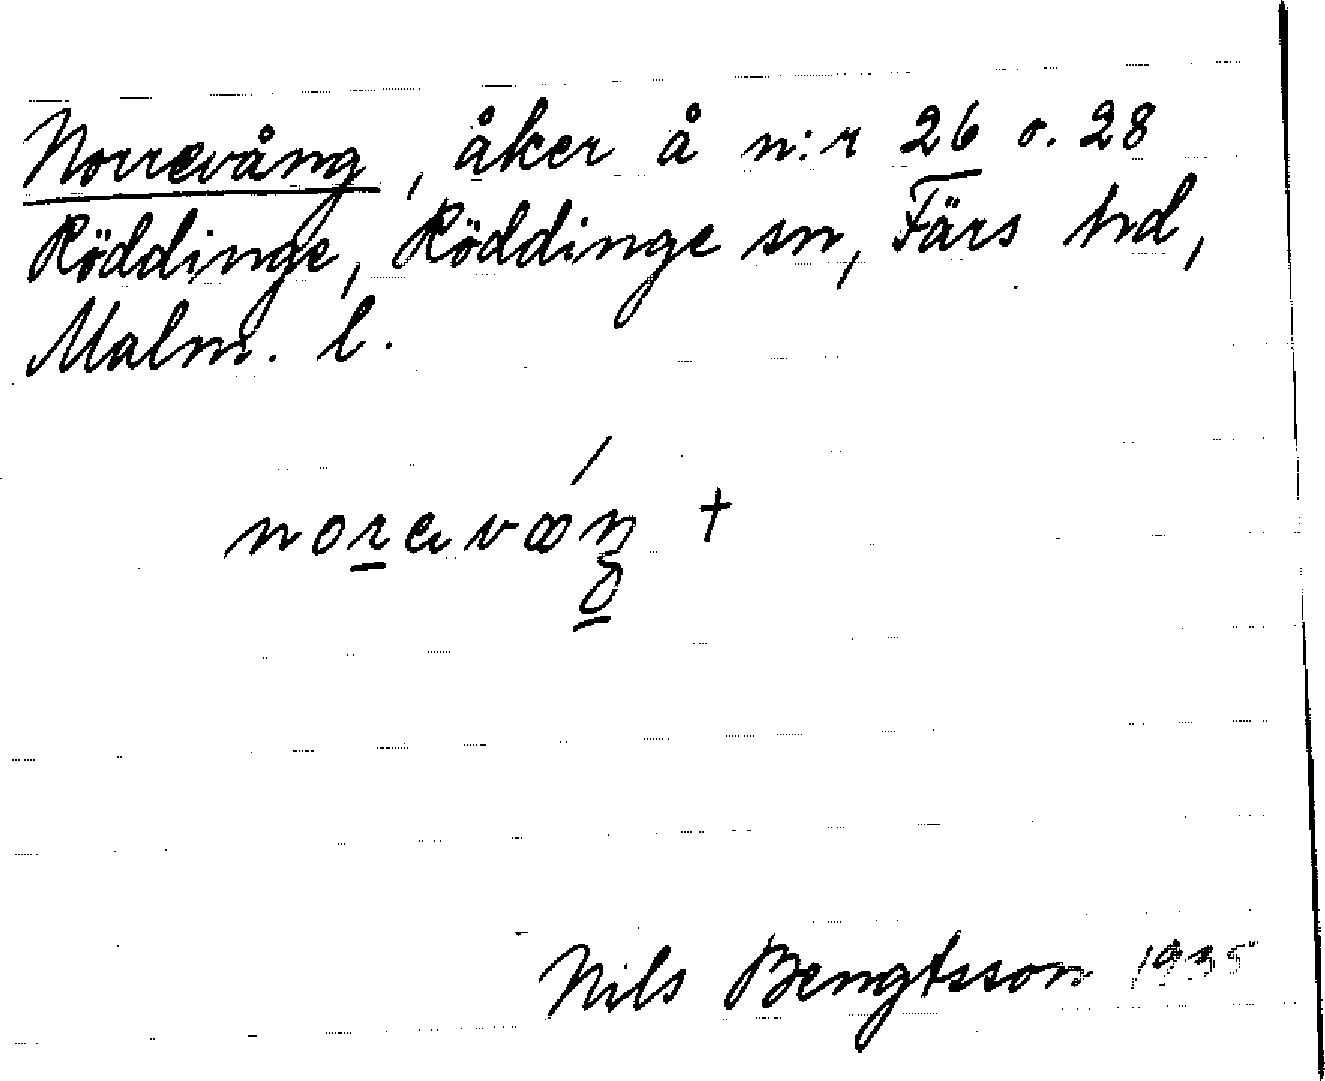 Norrevång, åker å n:r 26 o. 28
Röddinge, Röddinge sn, Färs hd,
Malm. l.
Nils Bengtsson 1935